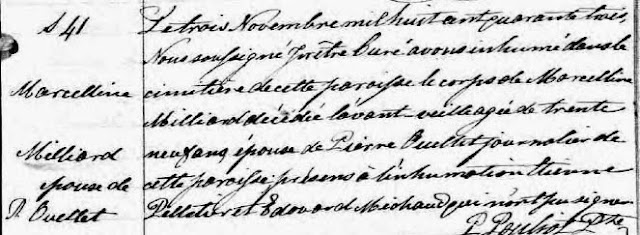 S 41
Marcelline
Milliard
epouse de
P. Ouellet
Le trois Novembre mil huit cent quarante trois,
Nous soussigné Prêtre Curé avons inhumé dans le
cimetière de cette paroisse le corps de Marcelline
Milliard décédée l'avant veille agée de trente
neuf ans épouse de Pierre Ouellet journalier de
cette paroisse présens à l'inhumation Etienne
Pelletier et Edouard Michaud qui n'ont pu signer
P. Pouliot Ptre